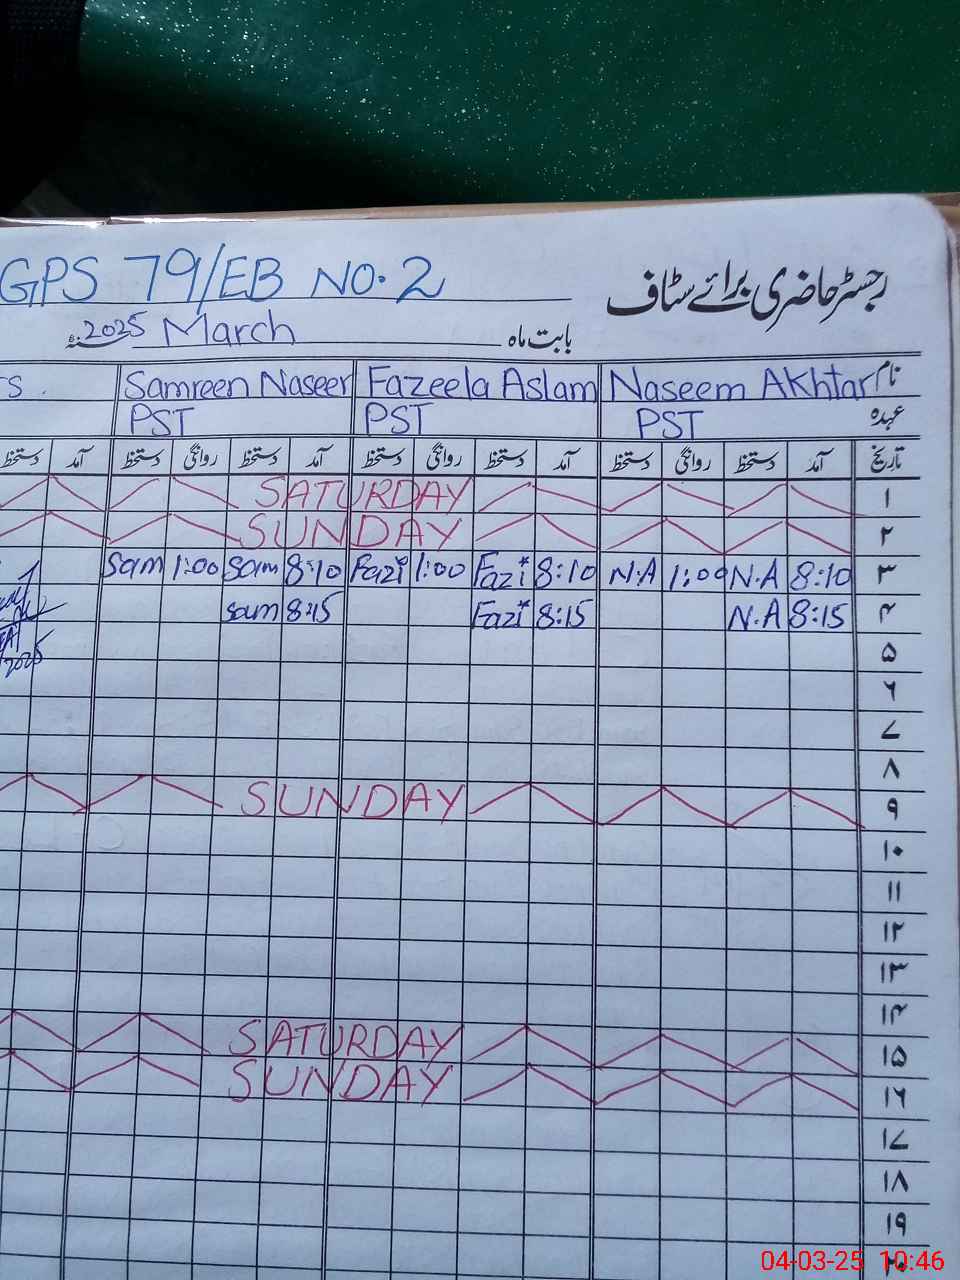 GPS 79/EB NO.2
رجسٹر حاضری برائے سٹاف
بابت ماہ March 2025 سنہ
نام Naseem Akhtar Fazeela Aslam Samreen Naseer
عہدہ PST PST PST
تاریخ آمد دستخط روانگی دستخط آمد دستخط روانگی دستخط آمد دستخط روانگی دستخط آمد دستخط
۱ SATURDAY
۲ SUNDAY
۳ 8:10 N.A 1:00 N.A 8:10 Fazi 1:00 Fazi 8:10 Sam 1:00 Sam
۴ 8:15 N.A 8:15 Fazi 8:15 Sam
۵
۶
۷
۸
۹ SUNDAY
۱۰
۱۱
۱۲
۱۳
۱۴
۱۵ SATURDAY
۱۶ SUNDAY
۱۷
۱۸
۱۹
۲۰
04-03-25 10:46